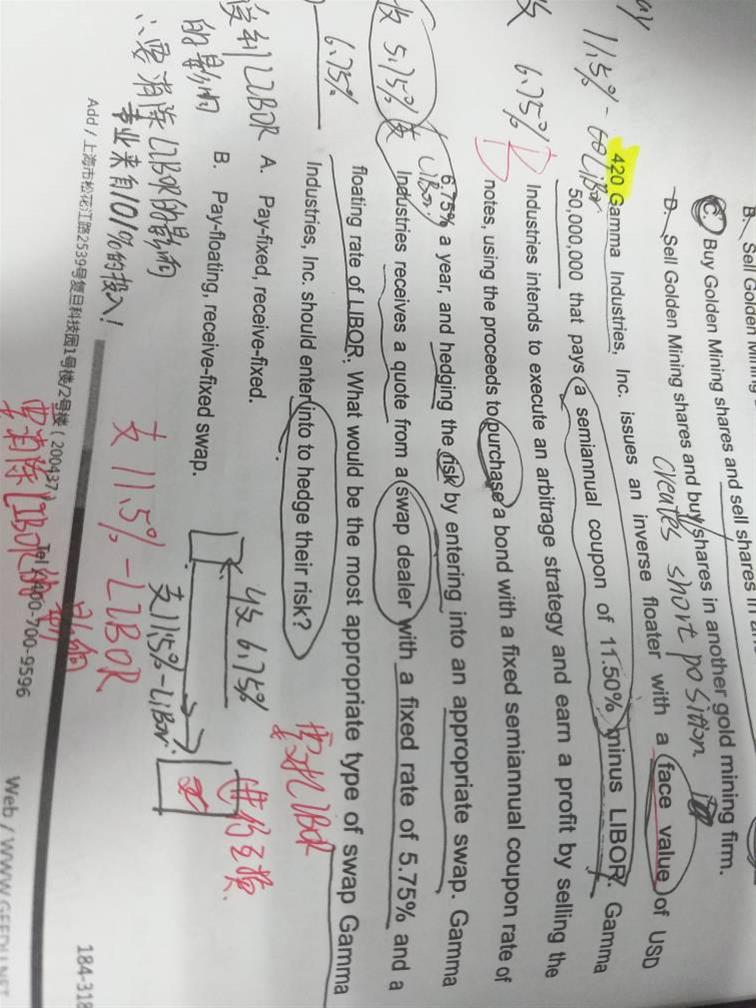 B. Sell Golden Mining
C. Buy Golden Mining shares and sell shares in
D. Sell Golden Mining shares and buy shares in another gold mining firm.
creates short position
420 Gamma Industries, Inc. issues an inverse floater with a face value of USD
50,000,000 that pays a semiannual coupon of 11.50% minus LIBOR. Gamma
Industries intends to execute an arbitrage strategy and earn a profit by selling the
notes, using the proceeds to purchase a bond with a fixed semiannual coupon rate of
6.75% a year, and hedging the risk by entering into an appropriate swap. Gamma
Industries receives a quote from a swap dealer with a fixed rate of 5.75% and a
floating rate of LIBOR. What would be the most appropriate type of swap Gamma
Industries, Inc. should enter into to hedge their risk?
A. Pay-fixed, receive-fixed.
B. Pay-floating, receive-fixed swap.
ay
11.5% -
Libor
6.75%
收 5.75% 支
Libor.
6.75%
LIBOR
的影响
∴要消除LIBOR的影响
专业来自101%的投入!
收 6.75%
支11.5%-LiBor.
支 11.5% - LIBOR
要消除LIBOR的影响
Add / 上海市松花江路2539号复旦科技园1号楼/2号楼 ( 200437 )
Tel / 400-700-9596
Web / WWW.GFEDU.NET
184-318